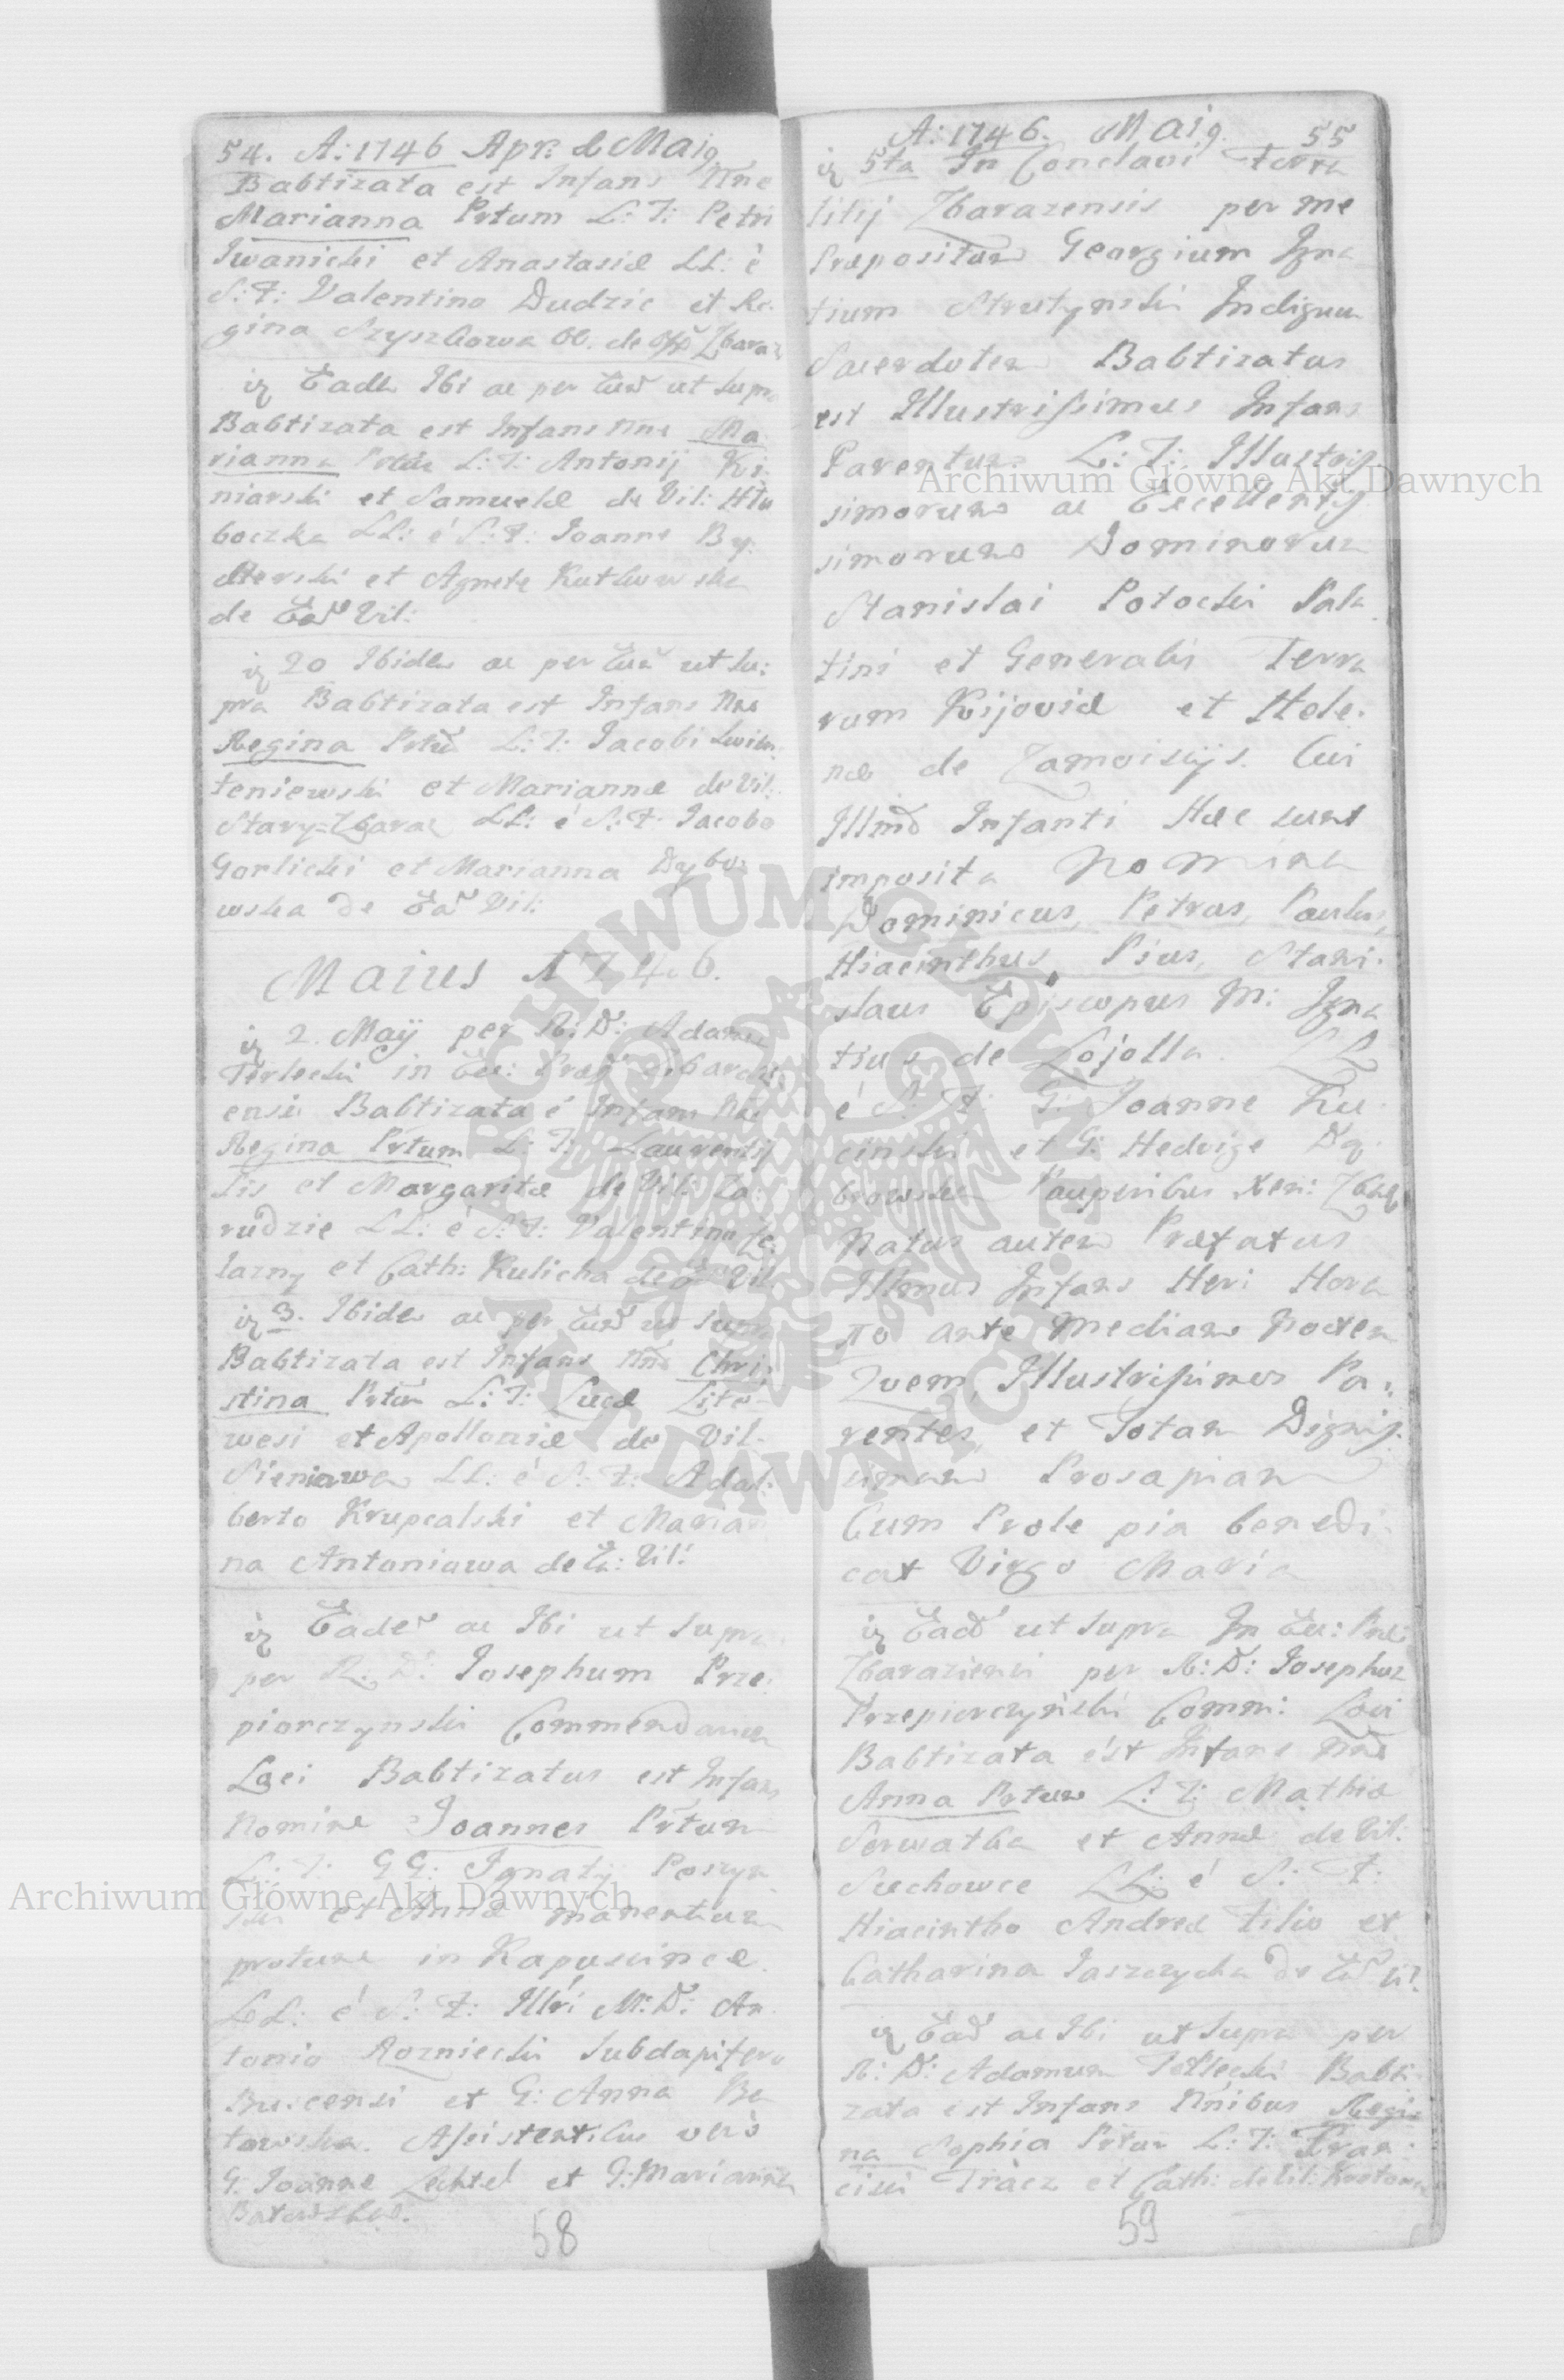 54. A: 1746 Apr: & Maig
Babtizata est Infans Nne
Marianna Prtum L: T: Petri
Iwanicki et Anastasiæ LL: è
S: F: Valentino Dudzic et Re-
gina Szyszkowa de Zbaraz
ig Eade Ibi ac per ut supra
Babtizata est Infans Nne Ma
rianna L: T: Antonij Ki-
niarski et Samuelæ de Vil: Hlu
boczka LL: é S: F: Joanne By-
et Agnete
de Ead Vil:
ig 20 Ibidem ac per ut su:
pra Babtizata est Infans Nne
Regina L: T: Jacobi
teniewski et Mariannæ de Vil:
Stary=Zbaraz LL: é S: F: Jacobo
Gorlicki et Marianna Dybo
wska de Ead Vil:
Maius 1746.
ig 2. Maÿ per R: D: Adamum
Terlecki in Ec:
ensi Babtizata é Infans Nne
Regina Prtum L: T: Laurentij
Lis et Margaritæ de Vil: Za:
rudzie LL: é S: F: Valentino Ze:
lazny et Cath: Kulicha de Vil
ig 3. Ibidem ac per ut supra
Babtizata est Infans Nne Chri:
stina Prtum L: T: Lucæ Lite-
wesi et Apolloniæ de Vil-
Sieniawa LL: é S: F: Adal:
berto Krupcalski et Marian
na Antoniowa de Ea: Vil:
ig Eade ac Ibi ut supra
per R: D: Josephum Prze:
piorczynski Commendarium
Loci Babtizatus est Infans
Nomine Joannes Prtum
L: T: GG: Ignatij
et Annæ manentium
in Kapuscincæ
LL: é S: F: Illri M: D: An
tonio Rozniecki Subdapifero
Buscensi et G: Anna Ba
towska. Assistentibus verò
G: Joanne Lechtel et G: Marianna
Batowska.
58
A: 1746. Maig. 55
ig 5ta In Conclavi Terra
litij Zbarazensis per me
Præpositum Georgium Igna
tium Strutynski Indignum
Sacerdotem Babtizatus
est Illustrissimus Infans
Parentum L: T: Illustris
simorum ac Excellentis
simorum Dominorum
Stanislai Potocki Pala
tini et Generalis Terra
rum Kijoviæ et Hele-
næ de Zamoiscijs. Cui
Illmo Infanti Hæc sunt
imposita Nomina
Dominicus, Petrus, Paulus,
Hiacinthus, Pius, Stani-
slaus Episcopus M: Igna
tius de Lojolla. LL
é S: F: G: Joanne Ku-
cinski et G: Hedvige Dą-
browska Pauperibus Xen: Zbar
Natus autem Præfatus
Illmus Infans Heri Hora
10 ante Mediam Noctem
Quem, Illustrissimos Pa:
rentes, et Totam Dignis
simam Prosapiam
Cum Prole pia benedi-
cat Virgo Maria
ig Ead ut supra In Ec:
Zbaraziensi per R: D: Josephum
Przepiorczyński Comm: Loci
Babtizata ést Infans Nne
Anna Prtum L: T: Mathiæ
Serwatka et Annæ de Vil:
Suchowce LL: é S: F:
Hiacintho Andreæ filio et
Catharina Jaszczycha de Ead Vil
ig Ead ac Ibi ut supra per
R: D: Adamum Terlecki Babti
zata est Infans Nnibus Regi-
na Sophia Prtum L: T: Fran:
cisci Tracz et Cath: de Vil:
59
Archiwum Główne Akt Dawnych
Archiwum Główne Akt Dawnych
ARCHIWUM GŁÓWNE AKT DAWNYCH